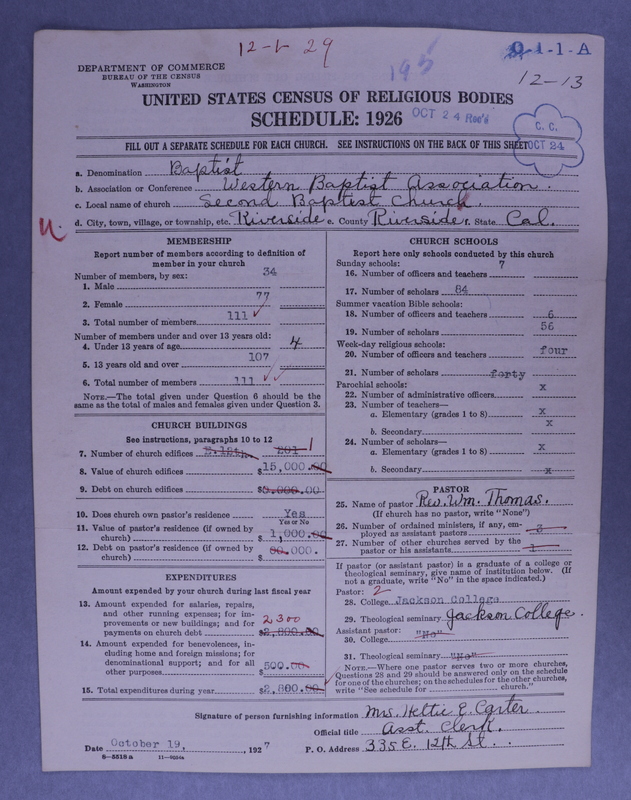 12-1-29
195
9-1-1-A
12-13
DEPARTMENT OF COMMERCE
BUREAU OF THE CENSUS
WASHINGTON
UNITED STATES CENSUS OF RELIGIOUS BODIES
SCHEDULE: 1926
OCT 24 Rec'd
C. C.
OCT 24
FILL OUT A SEPARATE SCHEDULE FOR EACH CHURCH. SEE INSTRUCTIONS ON THE BACK OF THIS SHEET
a. Denomination Baptist
b. Association or Conference Western Baptist Association.
c. Local name of church Second Baptist Church.
d. City, town, village, or township, etc. Riverside e. County Riverside f. State Cal.
MEMBERSHIP
Report number of members according to definition of
member in your church
Number of members, by sex:
1. Male 34
2. Female 77
3. Total number of members 111
Number of members under and over 13 years old:
4. Under 13 years of age 4
5. 13 years old and over 107
6. Total number of members 111
NOTE.—The total given under Question 6 should be the
same as the total of males and females given under Question 3.
CHURCH BUILDINGS
See instructions, paragraphs 10 to 12
7. Number of church edifices 1
8. Value of church edifices $15,000.00
9. Debt on church edifices $5,000.00
10. Does church own pastor's residence Yes
Yes or No
11. Value of pastor's residence (if owned by
church) $1,000.00
12. Debt on pastor's residence (if owned by
church) $00.000.
EXPENDITURES
Amount expended by your church during last fiscal year
13. Amount expended for salaries, repairs,
and other running expenses; for im-
provements or new buildings; and for 2300
payments on church debt $2,800.00
14. Amount expended for benevolences, in-
cluding home and foreign missions; for
denominational support; and for all
other purposes $500.00
15. Total expenditures during year $2,800.00
CHURCH SCHOOLS
Report here only schools conducted by this church
Sunday schools:
16. Number of officers and teachers 7
17. Number of scholars 84
Summer vacation Bible schools:
18. Number of officers and teachers 6
19. Number of scholars 56
Week-day religious schools:
20. Number of officers and teachers four
21. Number of scholars forty
Parochial schools:
22. Number of administrative officers x
23. Number of teachers—
a. Elementary (grades 1 to 8) x
b. Secondary x
24. Number of scholars—
a. Elementary (grades 1 to 8) x
b. Secondary x
PASTOR
25. Name of pastor Rev. Wm. Thomas.
(If church has no pastor, write "None")
26. Number of ordained ministers, if any, em-
ployed as assistant pastors 3
27. Number of other churches served by the
pastor or his assistants 1
If pastor (or assistant pastor) is a graduate of a college or
theological seminary, give name of institution below. (If
not a graduate, write "No" in the space indicated.)
Pastor: 2
28. College Jackson College
29. Theological seminary Jackson College.
Assistant pastor:
30. College "No"
31. Theological seminary "No"
NOTE.—Where one pastor serves two or more churches,
Questions 28 and 29 should be answered only on the schedule
for one of the churches; on the schedules for the other churches,
write "See schedule for church."
Signature of person furnishing information Mrs. Hettie E. Carter
Official title Asst. Clerk.
Date October 19, 1927
P. O. Address 335 E. 12th St.
8—5518 a 11—9284a